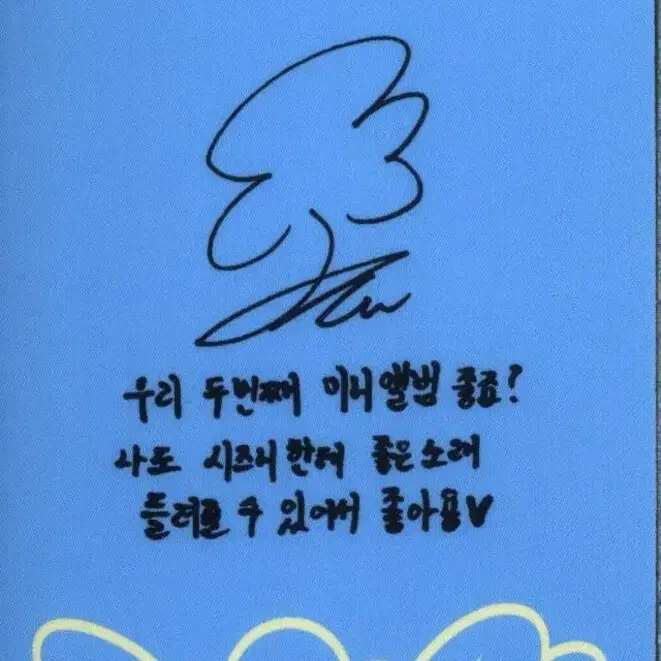 우리 두번째 미니앨범 좋죠?
나도 시즈니한테 좋은노래
들려줄 수 있어서 좋아용♥